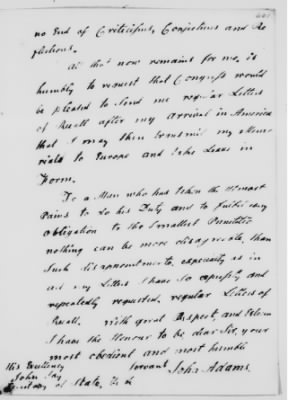 no End of Criticisms, Conjectures and Re
flections.
All that now remains for me, is
humbly to request that Congress would
be pleased to send me regular Letters
of Recall after my arrival in America
that I may then transmit my Memo
rials to Europe and take Leave in
Form.
To a Man who has taken the utmost
Pains to do his Duty and to fulfil every
obligation to the smallest Punctilio
nothing can be more disagreable, than
such disappointments, especially as in
all my Letters I have so expressly and
repeatedly requested, regular Letters of
Recall. With great Respect, and Esteem
I have the Honour to be dear Sir, your
most obedient and most humble
servant John Adams.
His Excellency
John Jay
Secretary of State, &c